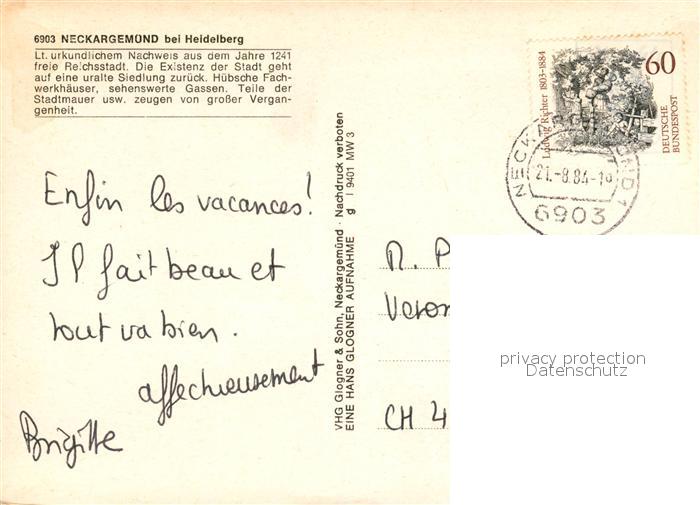 6903 NECKARGEMÜND bei Heidelberg
Lt. urkundlichem Nachweis aus dem Jahre 1241
freie Reichsstadt. Die Existenz der Stadt geht
auf eine uralte Siedlung zurück. Hübsche Fach-
werkhäuser, sehenswerte Gassen. Teile der
Stadtmauer usw. zeugen von großer Vergan-
genheit.
Enfin les vacances!
Il fait beau et
tout va bien.
affectueusement
Brigitte
VHG Glogner & Sohn, Neckargemünd · Nachdruck verboten
EINE HANS GLOGNER AUFNAHME g I 9401 MW 3
60
Ludwig Richter 1803-1884
DEUTSCHE
BUNDESPOST
21.-8.84-19
6903
M. P
Veron
CH 4
privacy protection
Datenschutz